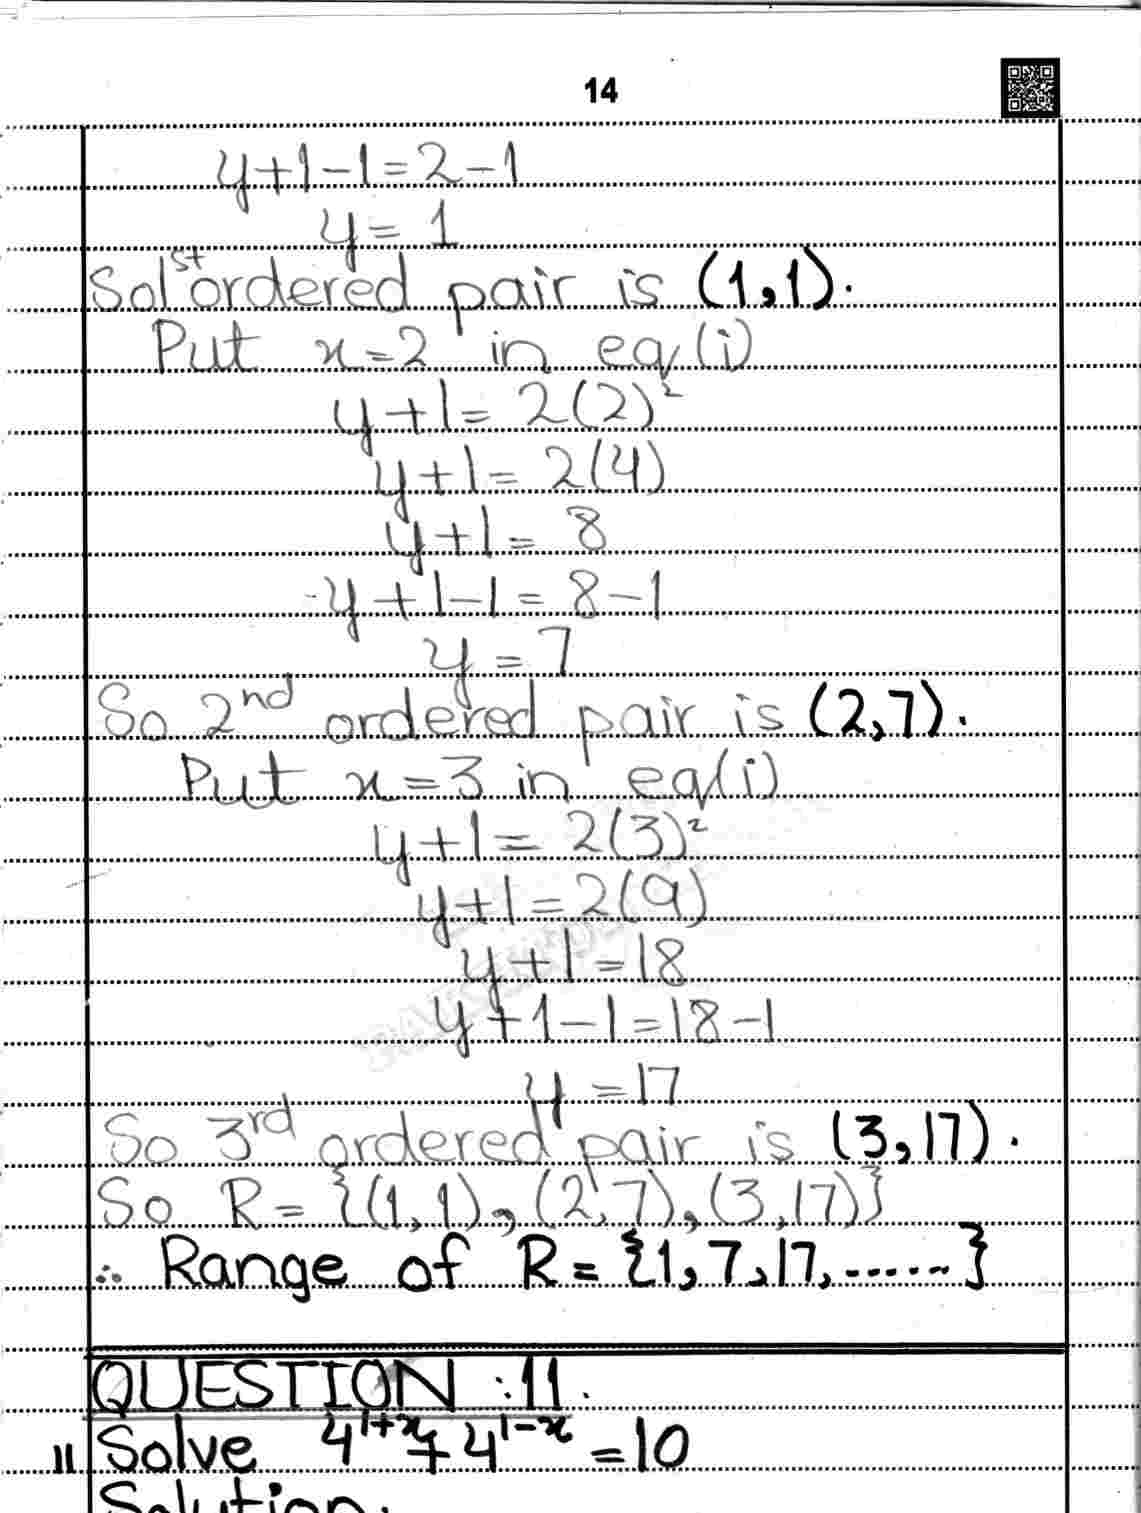 14
y+1-1=2-1
y=1
So 1st ordered pair is (1,1).
Put x=2 in eq(i)
y+1=2(2)²
y+1=2(4)
y+1=8
y+1-1=8-1
y=7
So 2nd ordered pair is (2,7).
Put x=3 in eq(i)
y+1=2(3)²
y+1=2(9)
y+1=18
y+1-1=18-1
y=17
So 3rd ordered pair is (3,17).
So R={(1,1),(2,7),(3,17)}
∴ Range of R={1,7,17,......}
QUESTION :11.
11 Solve 4^(1+x)+4^(1-x)=10
Solution: